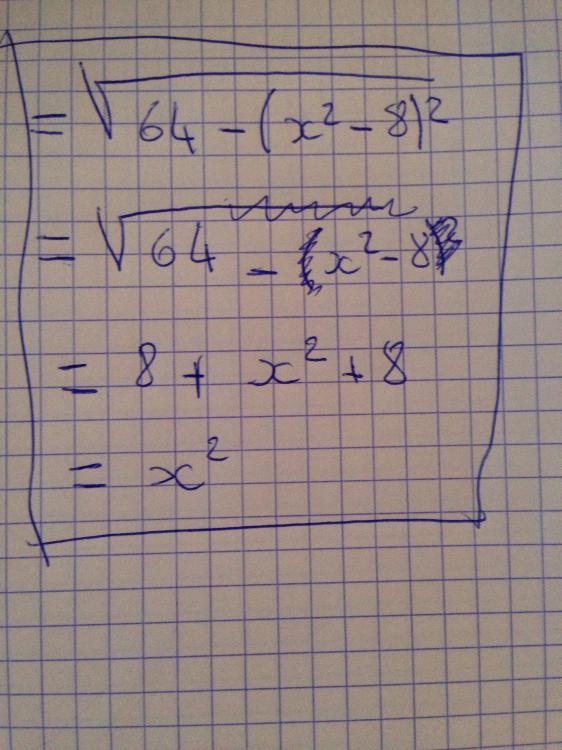 = √64 - (x² - 8)²
= √64 - x² - 8
= 8 + x² + 8
= x²